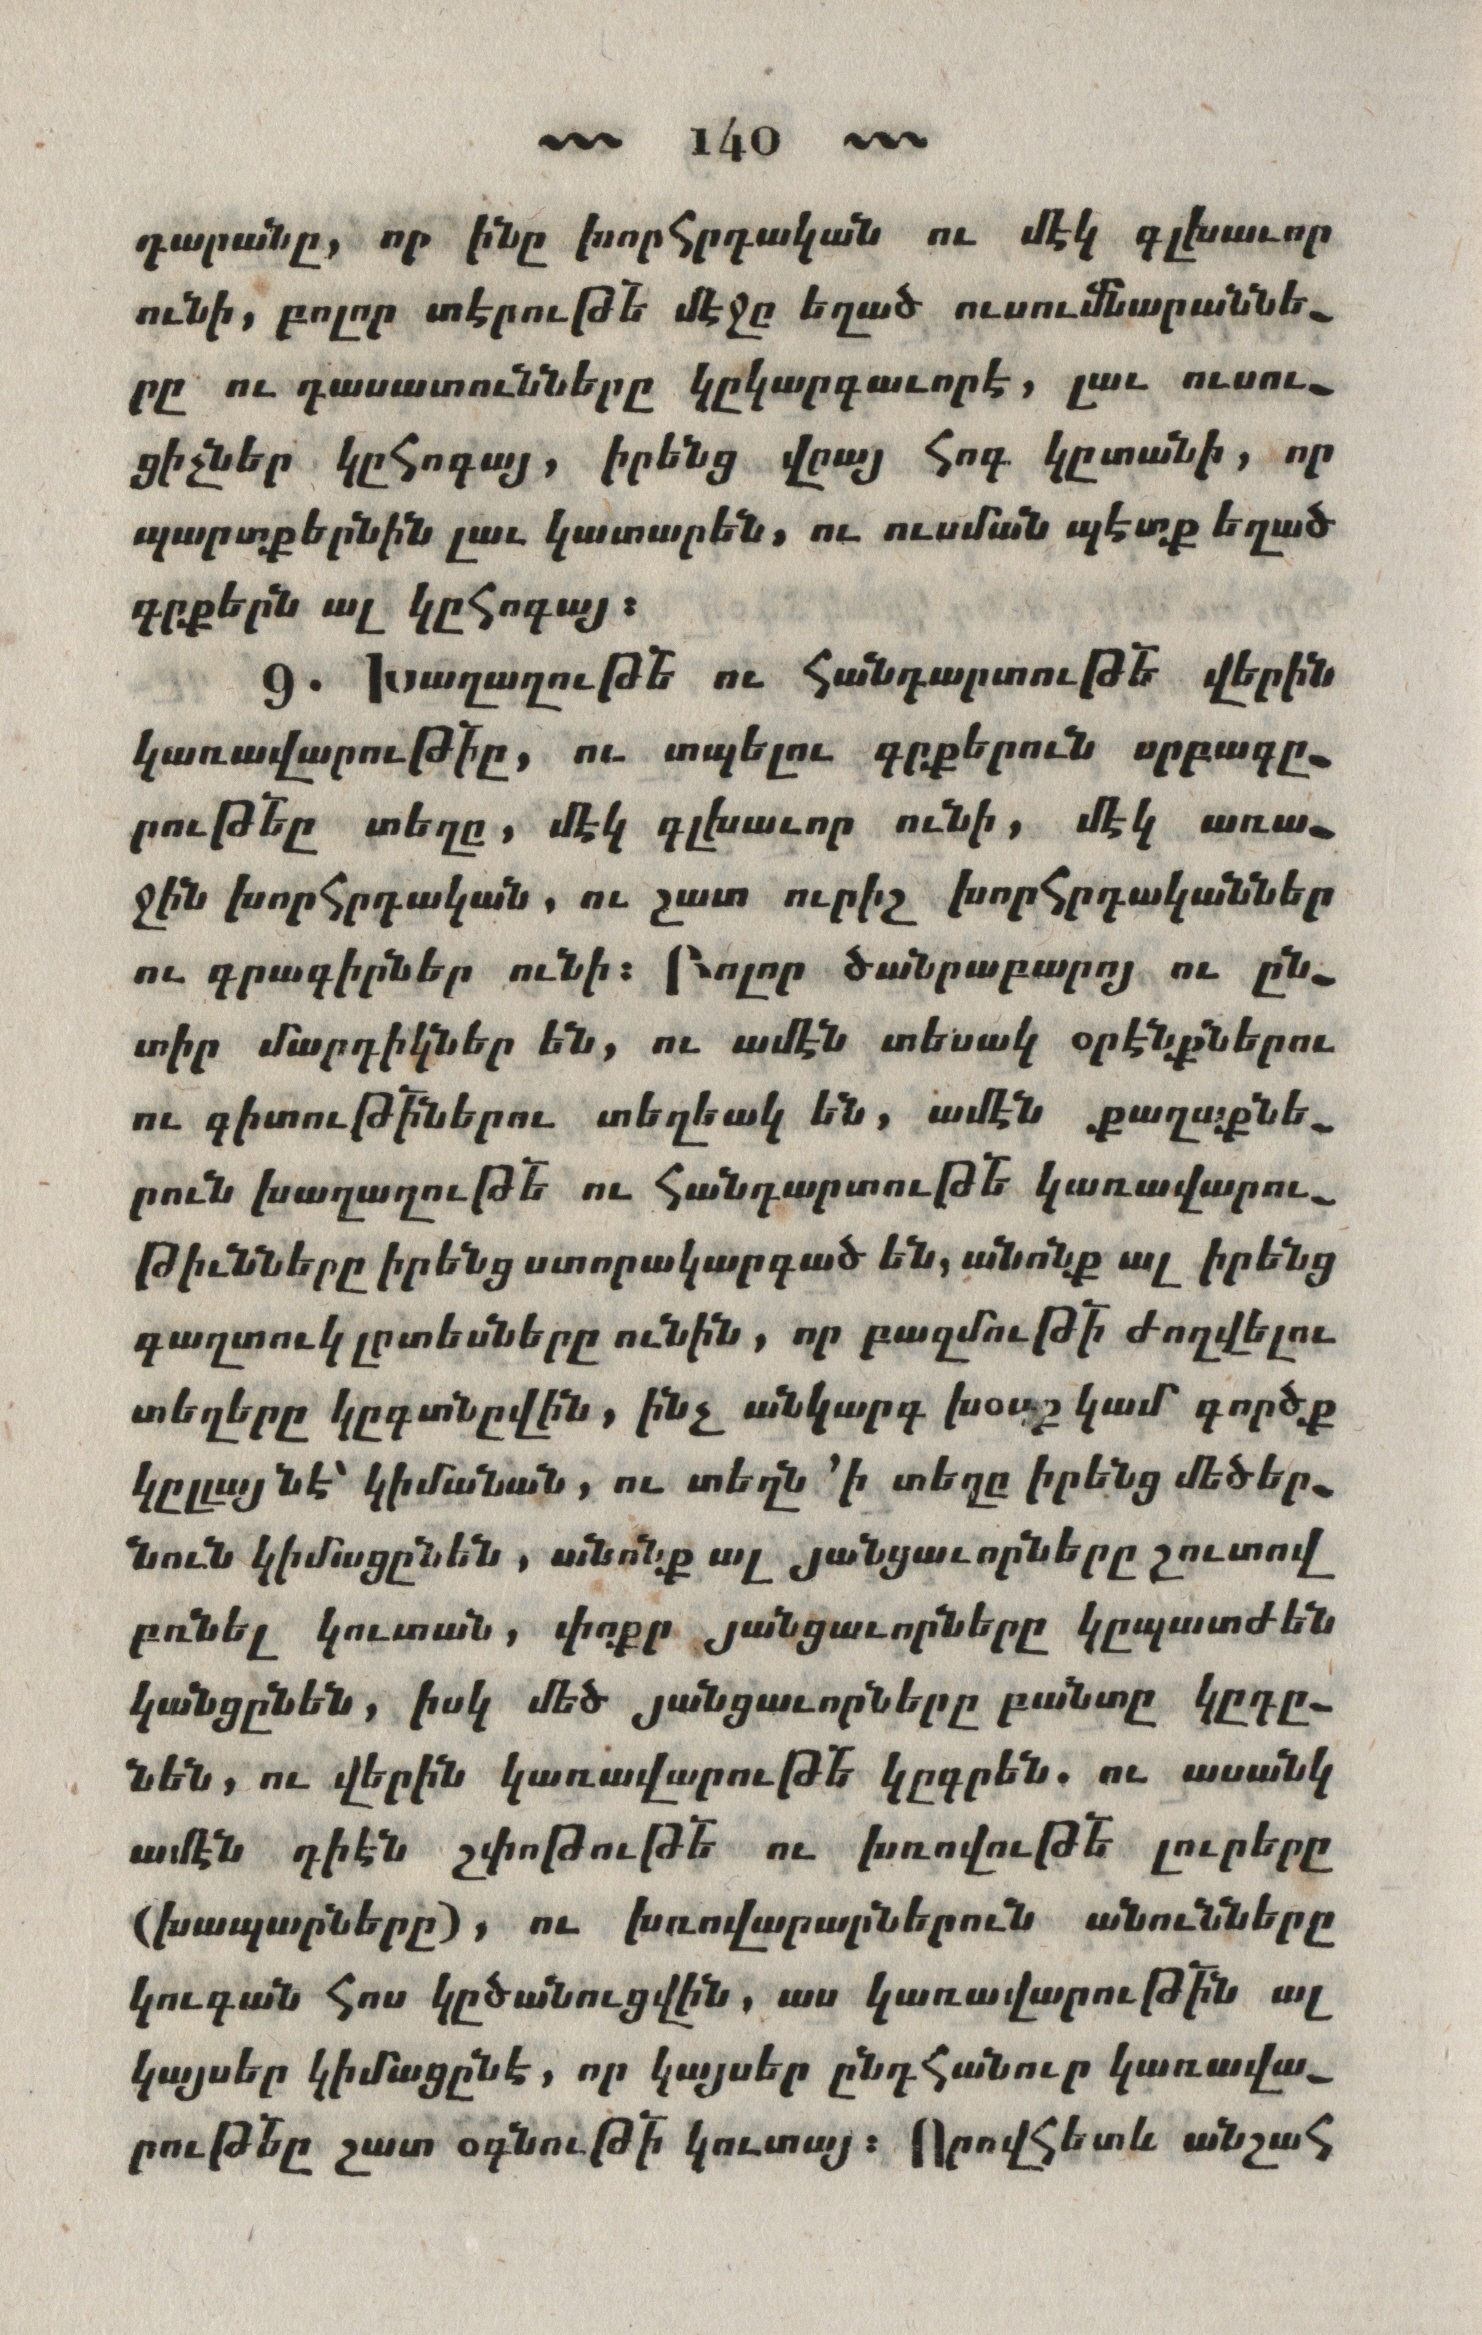 140
դարանը, որ ինը խորհրդական ու մէկ գլխաւոր
ունի, բոլոր տէրութե՟ մէջը եղած ուսումնարաննե֊
րը ու դասատունները կըկարգաւորէ, լաւ ուսու֊
ցիչներ կըհոգայ, իրենց վըայ հոգ կըտանի, որ
պարտքերնին լաւ կատարեն, ու ուսման պէտք եղած
գրքերն ալ կըհոգայ։
9. Խաղաղութե՟ ու հանդարտութե՟ վերին
կառավարութի՟ը, ու տպելու գրքերուն սրբագը֊
րութե՟ը տեղը, մէկ գլխաւոր ունի, մէկ առա֊
ջին խորհրդական, ու շատ ուրիշ խորհրդականներ
ու գրագիրներ ունի։ Բոլոր ծանրաբարոյ ու ըն֊
տիր մարդիկներ են, ու ամէն տեսակ օրէնքներու
ու գիտութի՟ներու տեղեակ են, ամէն քաղաքնե֊
րուն խաղաղութե՟ ու հանդարտութե՟ կառավարու֊
թիւնները իրենց ստորակարգած են, անոնք ալ իրենց
գաղտուկ լրտեսները ունին, որ բազմութի՟ ժողվելու
տեղերը կըգտնըվին, ինչ անկարգ խօսք կամ գործք
կըլլայ նէ՝ կիմանան, ու տեղն ՚ի տեղը իրենց մեծեր֊
նուն կիմացընեն, անոնք ալ յանցաւորները շուտով
բռնել կուտան, փոքր յանցաւորները կըպատժեն
կանցընեն, իսկ մեծ յանցաւորները բանտը կըդը֊
նեն, ու վերին կառավարութե՟ կըգրեն. ու ասանկ
ամէն դիէն շփոթութե՟ ու խռովութե՟ լուրերը
(խապարները), ու խռովարարներուն անունները
կուգան հոս կըծանուցվին, աս կառավարութի՟ն ալ
կայսեր կիմացընէ, որ կայսեր ընդհանուր կառավա֊
րութե՟ը շատ օգնութի՟ կուտայ։ Որովհետև անշահ